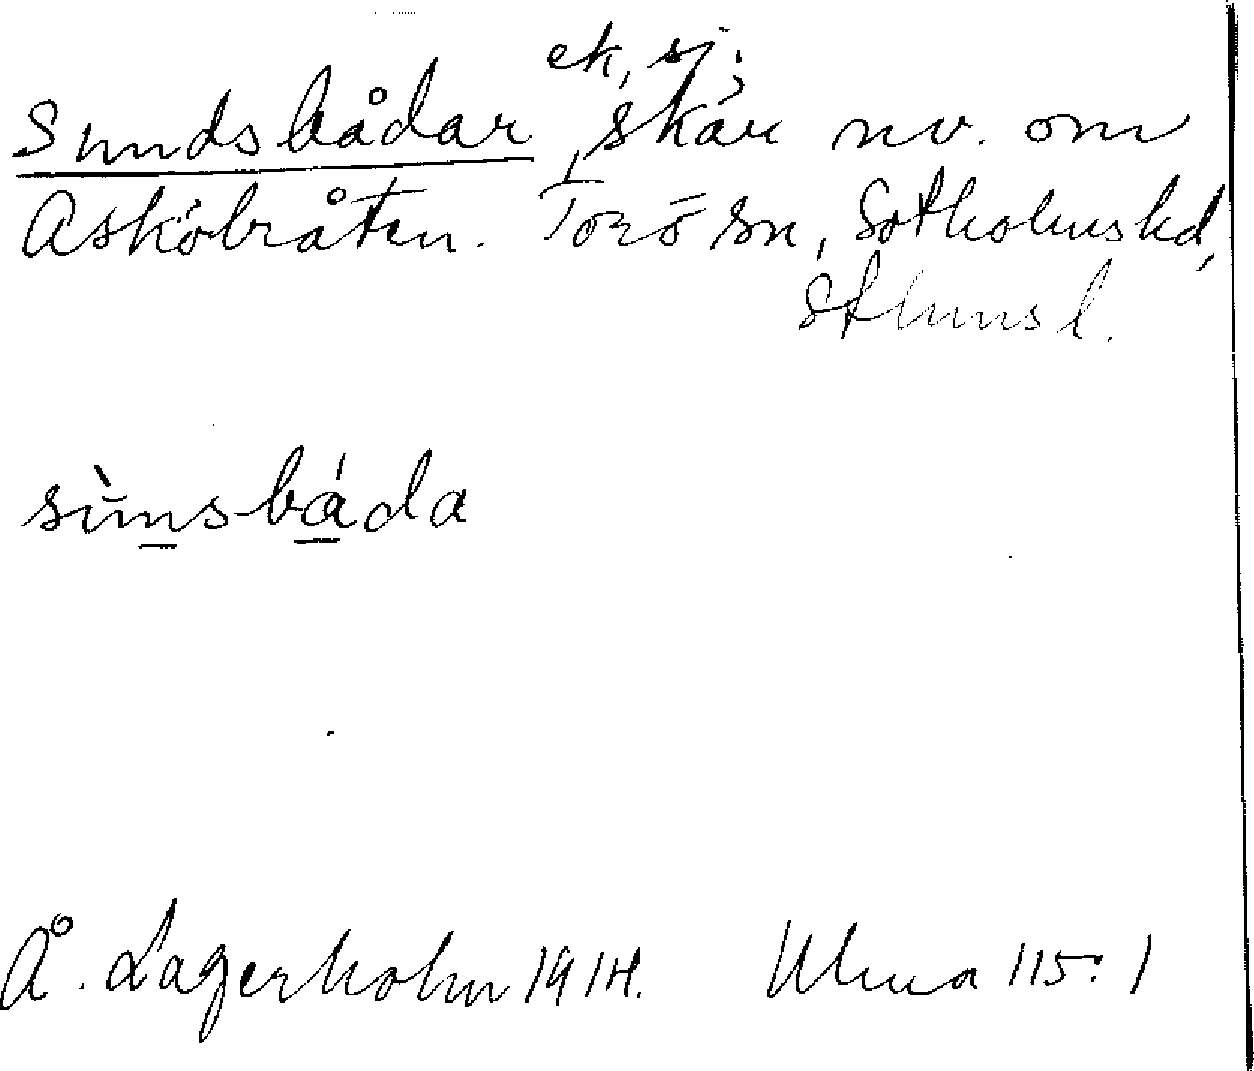 ek, sj;
Sundsbådar, skär nv. om
Asköbråten. Torö sn, Sotholms hd,
Sthms l.
sùns-båda
Å. Lagerholm 1914. Ulma 115:1